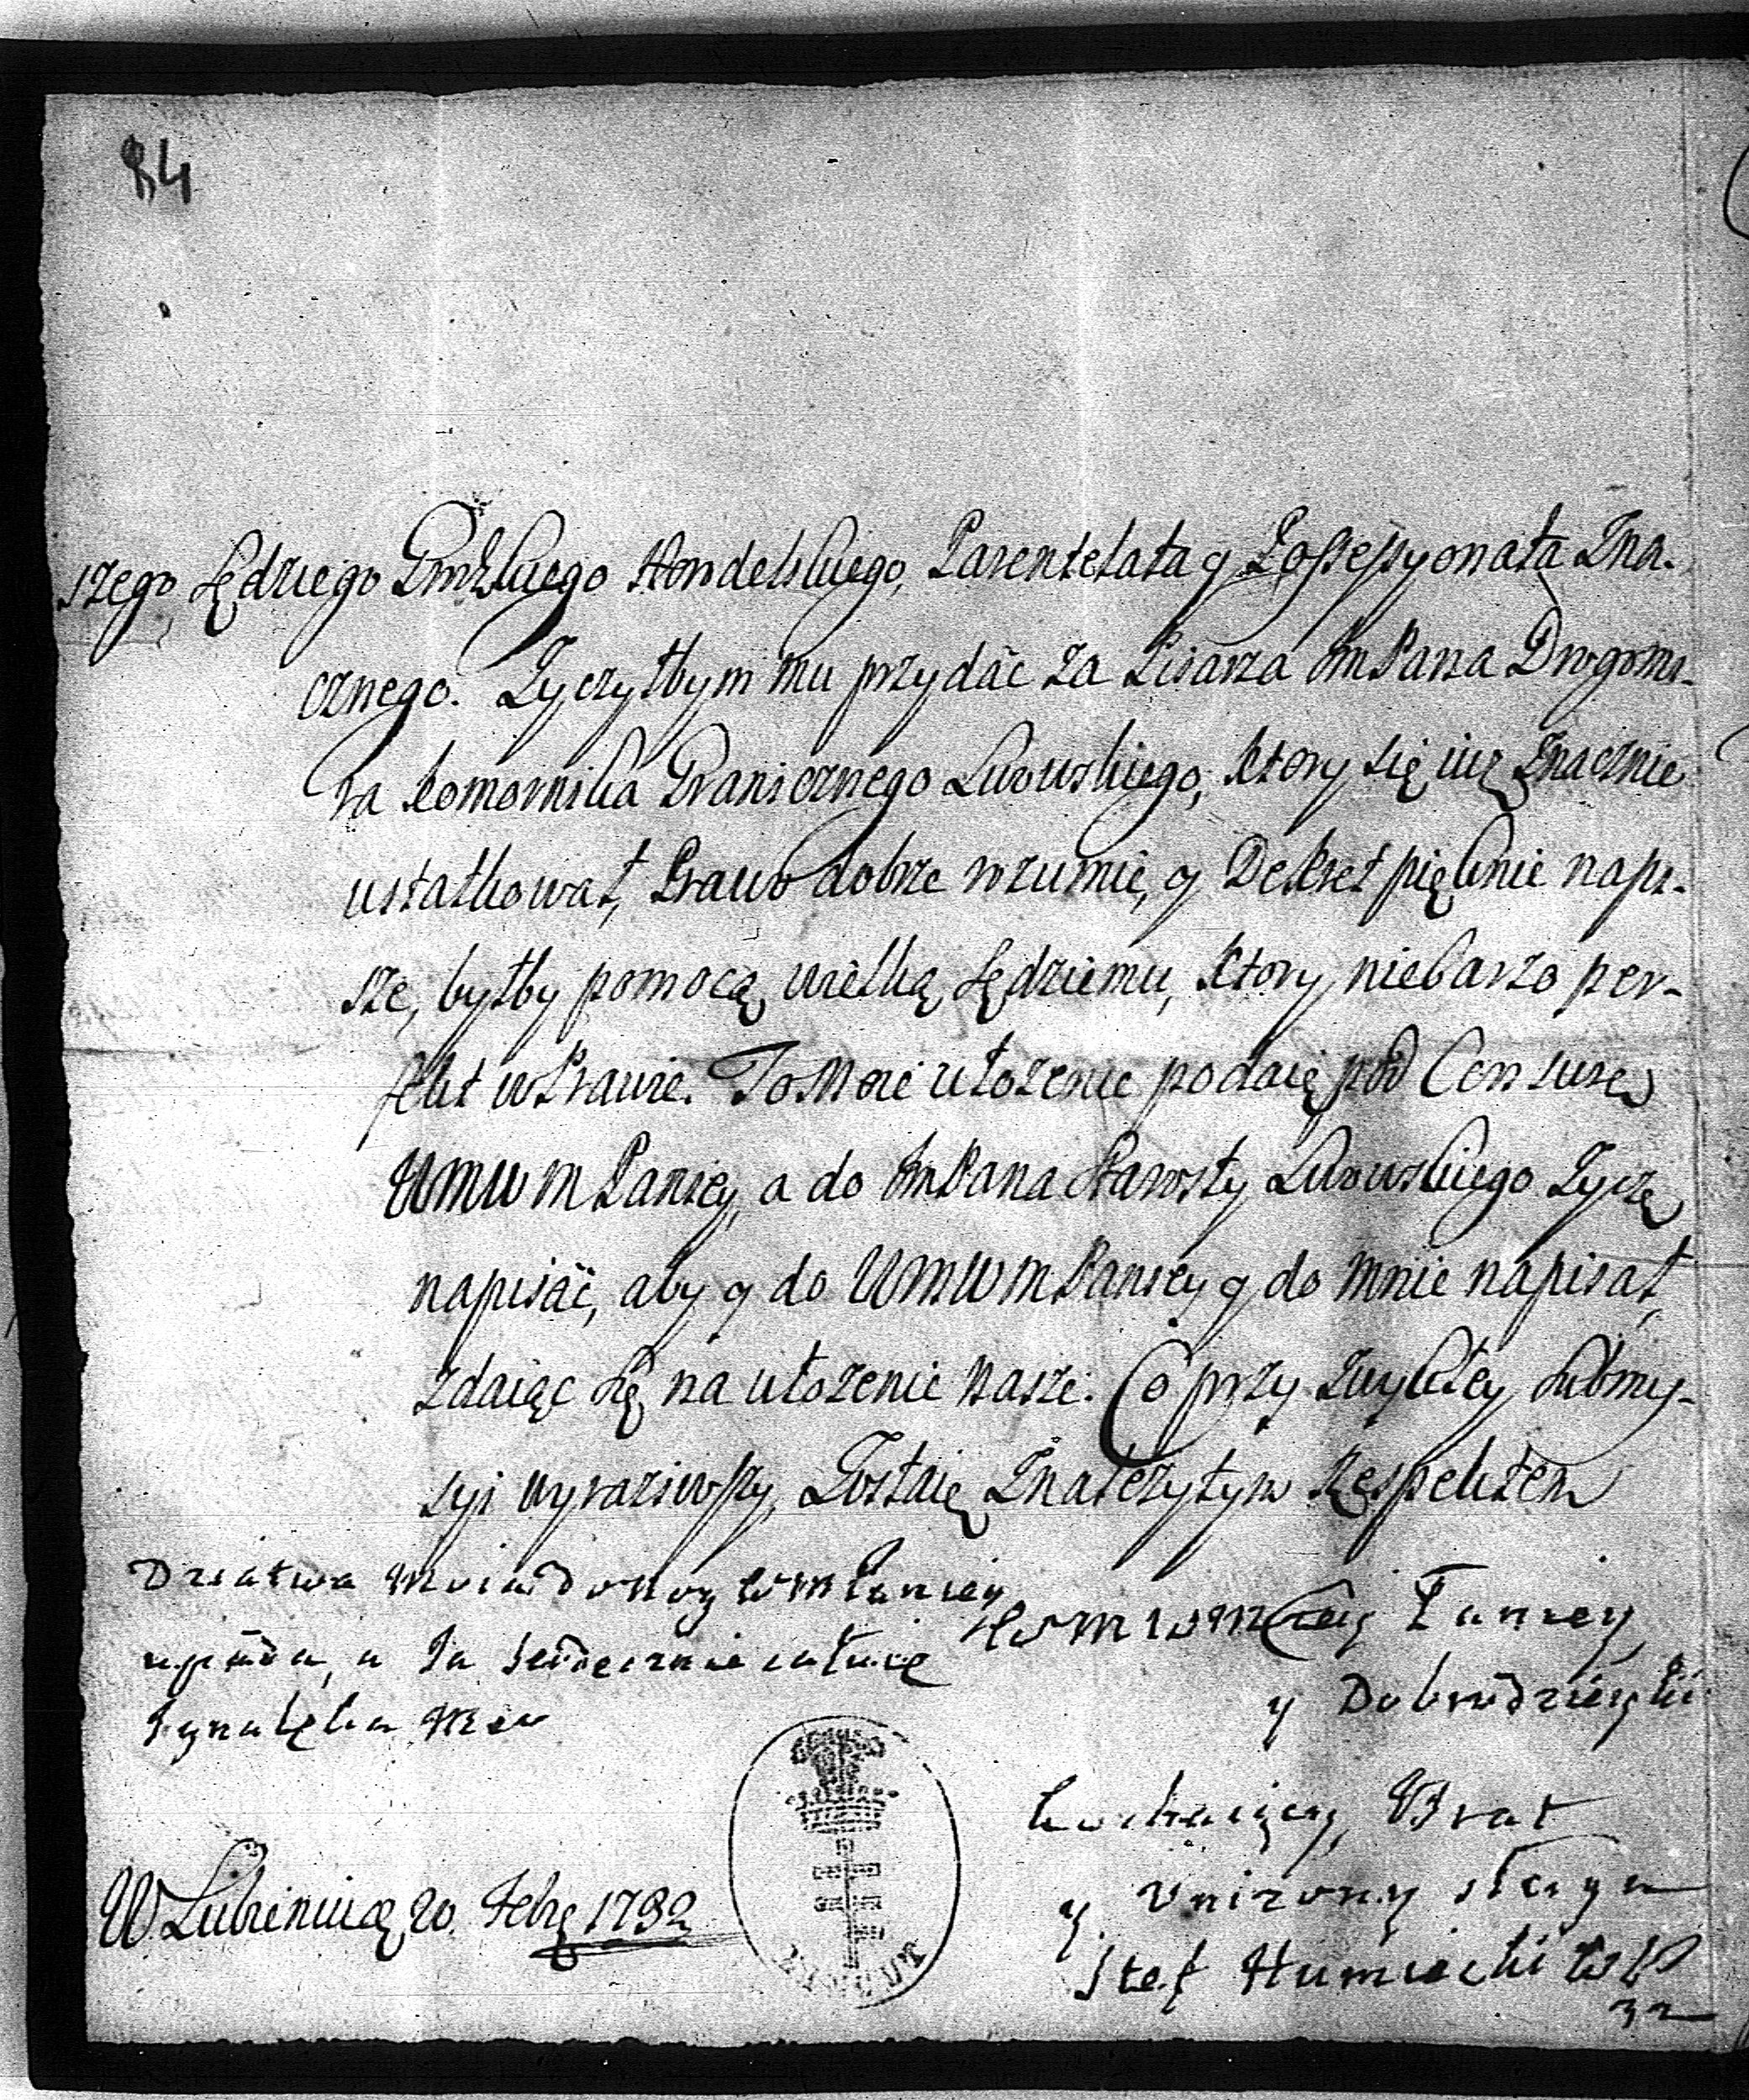 84
szego, Sędziego Grodzkiego Horodelskiego, Parentelata y Possessyonata Zna-
cznego. Zyczyłbym mu przydać za Pisarza JmPana Drogomi-
ra Komornika Granicznego Lwowskiego, ktory się iuz znacznie
ustatkował, Prawo dobrze rozumie, y Dekret pięknie napi-
sze, byłby pomocą wielką Sędziemu, ktory niebarzo per-
fekt w Prawie. To Moie ułozenie podaię pod Censurę
WMWMPaniey, a do JmPana Starosty Lwowskiego Zyczę
napisać, aby y do WMWMPaniey y do mnie napisał,
zdaiąc Się na ułozenie Nasze. Co przy zwykłey Submis-
syi wyraziwszy, Zostaię Znalezytym Respektem
Dziatwa Moia do Nog WMPaniey
upada, a Ja serdecznie całuię
Synalęka Meo
WMWMPaniey
y Dobrodzieyki
kochaiący Brat
y Unizony sługa
Stef Humiecki WP
32
W Lubieniu 20. Febr 1732